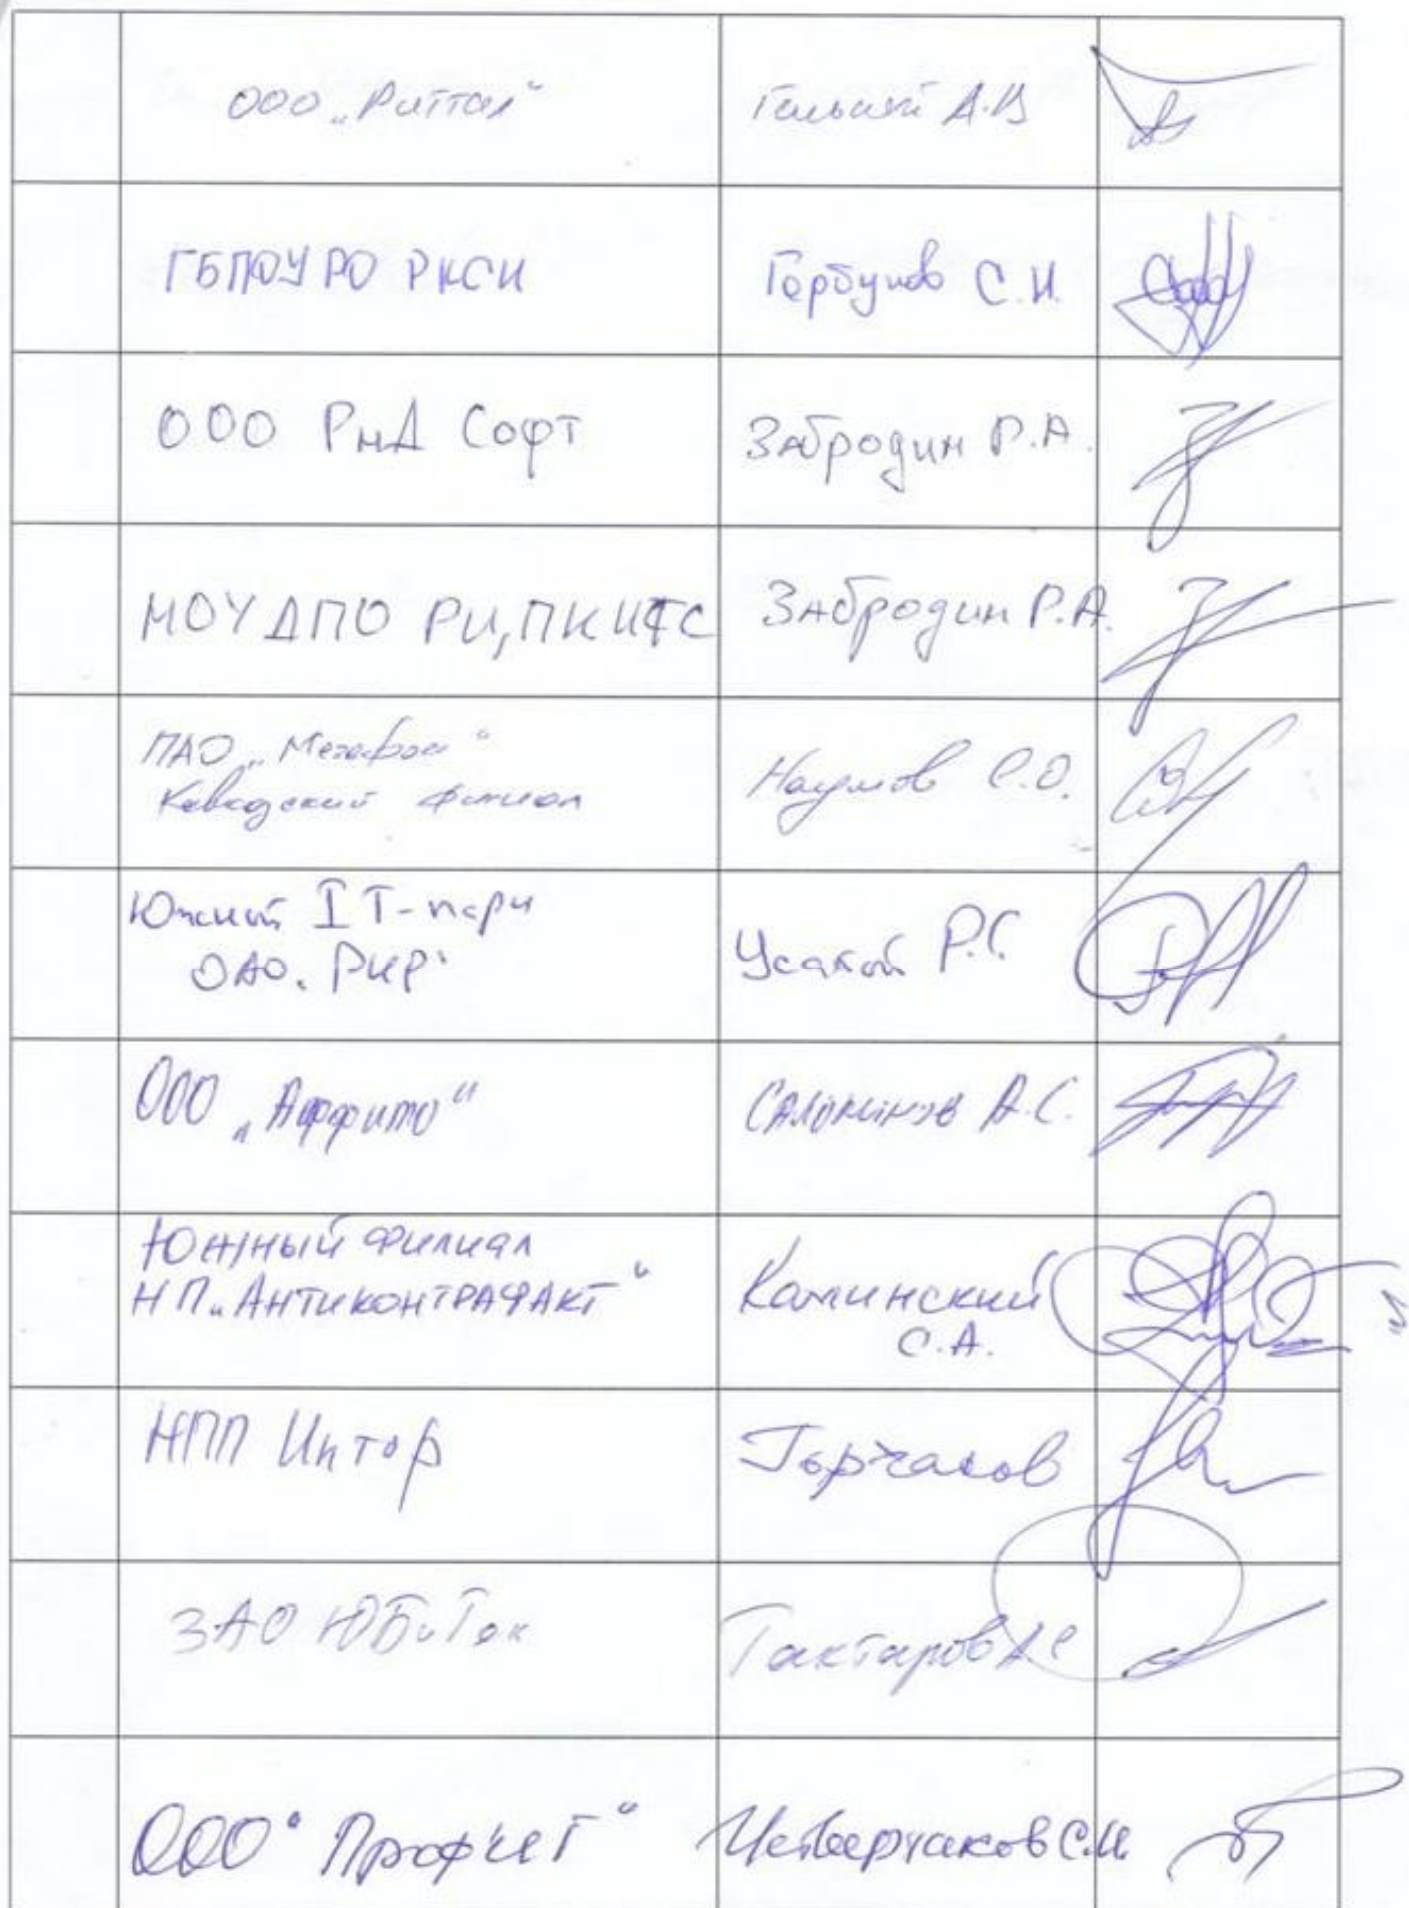 ООО „Риттал“
А.В
ГБПОУ РО РКСИ
Горбунов С.Н.
ООО РнД Софт
Забродин Р.А.
НОУ ДПО
Забродин Р.А.
ПАО „Мегафон“
Кавказский филиал
Наумов С.О.
Южный IT-парк
ОАО „РИР“
Усатой Р.С.
ООО „Аффито“
Саломинов А.С.
Южный филиал
НП „Антиконтрафакт“
Каминский
С.А.
НПП Интор
Горчаков
ЗАО ЮБиТек
Тактаров А.С
ООО "Профит"
Четверчаков С.И.